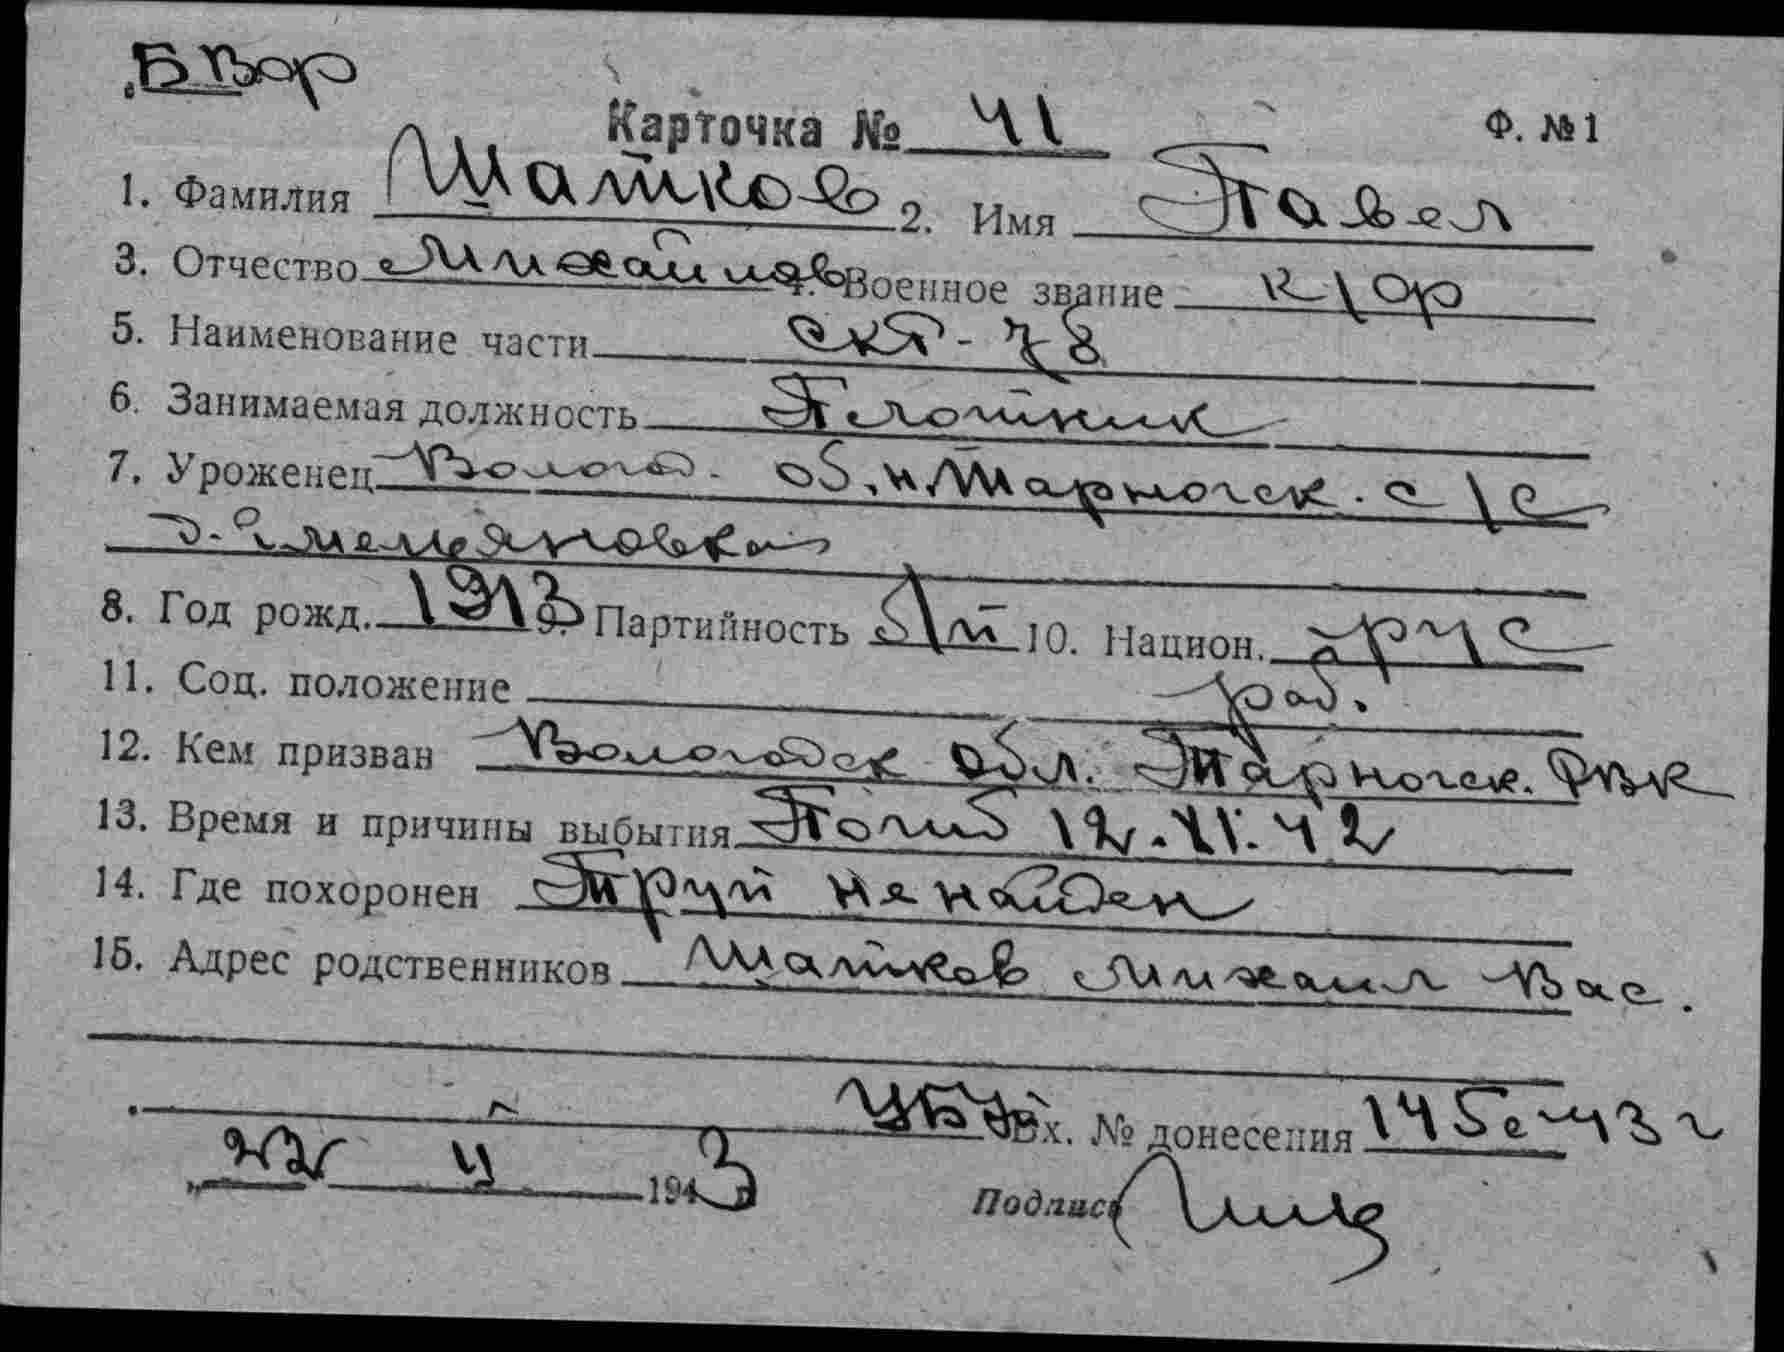 БВор
Карточка № 41 Ф. № 1
1. Фамилия Шатков 2. Имя Павел
3. Отчество Михайлов 4. Военное звание к/ф
5. Наименование части СКР-78
6. Занимаемая должность Плотник
7. Уроженец Волог. об. н. Тарногск. с/с
д. Емельяновская
8. Год рожд. 1913 9. Партийность б/п 10. Национ. рус
11. Соц. положение раб.
12. Кем призван Вологодск обл. Тарногск. РВК
13. Время и причины выбытия Погиб 12.XI.42
14. Где похоронен Труп не найден
15. Адрес родственников Шатков Михаил Вас.
Вх. № донесения 145с-43г
„22" II 1943
Подпись